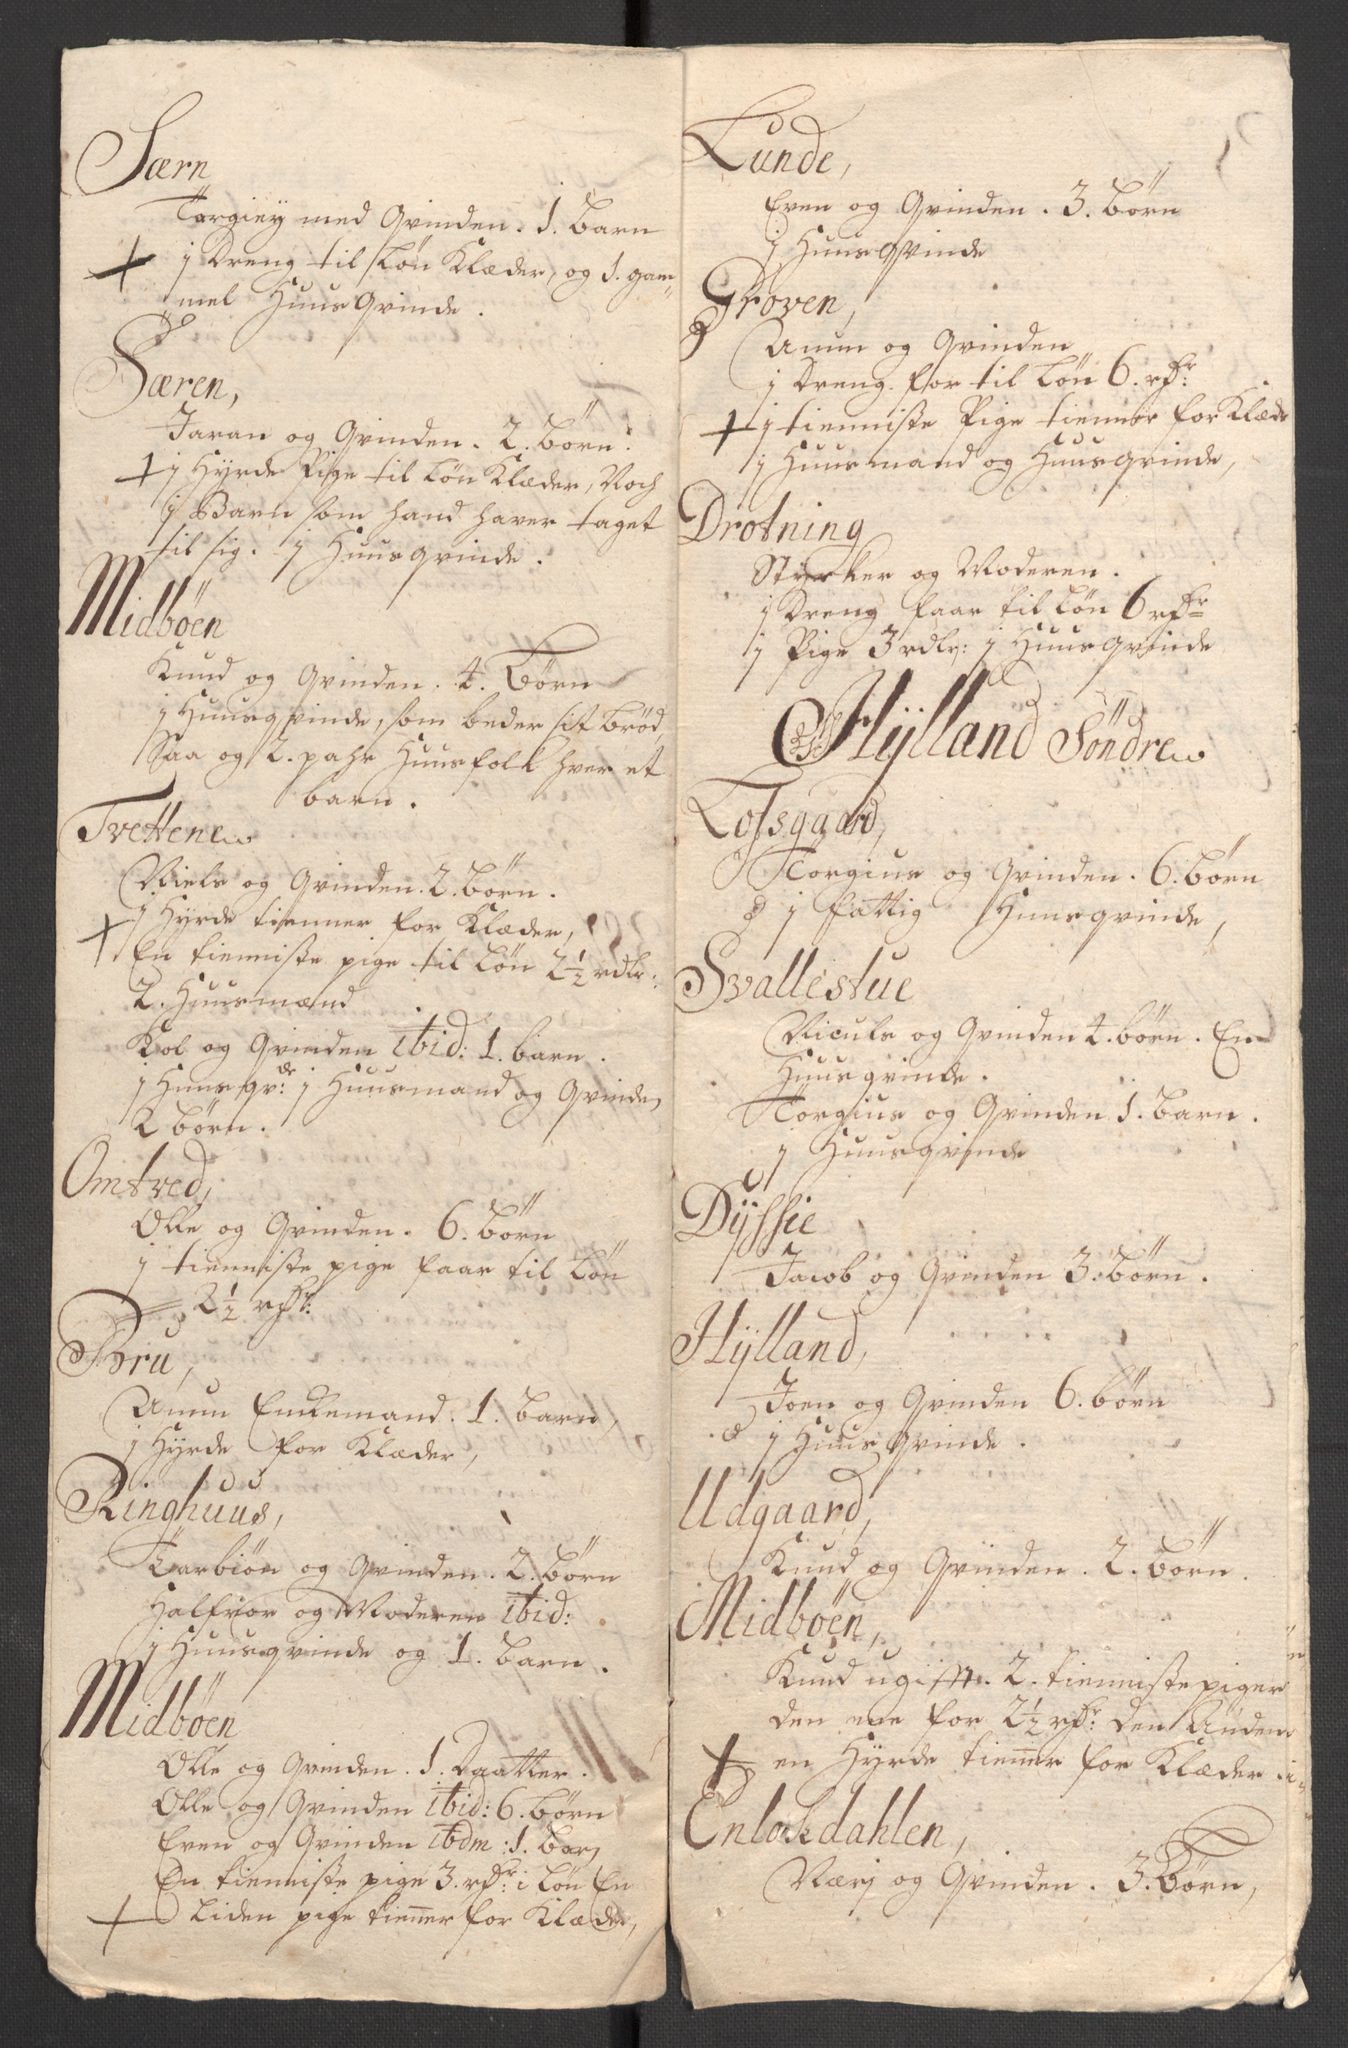 Særn
Torgiey med Qvinden. 1. Barn
+ 1 Dreng til Løn Klæder, og 1. gam=
mel Huus Qvinde.
Særen,
Jaran og Qvinden. 2. børn.
+ 1 Hyrde Pige til Løn Klæder, Noch
1 Barn som hand haver taget
til sig. 1 Huusqvinde.
Midbøen
Knud og Qvinden. 4. Børn
1 Huusqvinde, som beder sit brød,
Saa og 2. pahr Huusfolk hver et
barn.
Tvettene
Niels og Qvinden. 2. børn.
+ 1 Hyrde tienner for Klæder,
En tienniste pige til Løn 2½ rdlr:
2. Huusmænd
Kol og Qvinden ibid: 1. barn.
1 Huusqv:de 1 Huusmand og Qvinde,
2 børn.
Omtved,
Olle og Qvinden. 6. børn
1 tienniste pige faar til Løn
2½ rdr:
Boru,
Aunn Enckemand. 1. barn,
1 Hyrde for Klæder,
Ringhuus,
Tarbiøn og Qvinden. 2. børn
Halfvor og Moderen ibid:
1 Huusqvinde og 1. barn.
Midbøen
Olle og Qvinden. 1. Daatter.
Olle og Qvinden ibid: 6. børn
Even og Qvinden ibdm: 1. bar,
En tienniste pige 3. rdr: i Løn En
+ Liden pige tienner for Klæder,
Lunde,
Even og Qvinden. 3. børn
1 Huusqvinde
Groven,
Aunn og Qvinden
1 Dreng for til Løn 6. rdr:
+ 1 tienniste Pige tienner for Klæde
1 Huusmand og Huusqvinde,
Drotning
Styrker og Moderen.
1 Dreng faar til Løn 6 rdr
1 Pige 3 rdlr: 1 Huusqvinde
Hylland Söndre
Lofsgaard,
Torgius og Qvinden. 6. børn
1 fattig Huusqvinde,
Svallestue
Niculs og Qvinden 4. børn. En
Huusqvinde.
Torgius og Qvinden 1. barn.
1 Huusqvinde
Dyssie
Jacob og Qvinden 3. børn.
Hylland,
Joen og Qvinden 6. børn
1 Huus Qvinde.
Udgaard,
Knud og Qvinden. 2. børn.
Midbøen,
Knud ugift. 2. tienniste piger
den ene for 2½ rdr: den Anden
+ en Hyrde tienner for Klæder
Enlosdahlen,
Værj og Qvinden. 3. Børn,